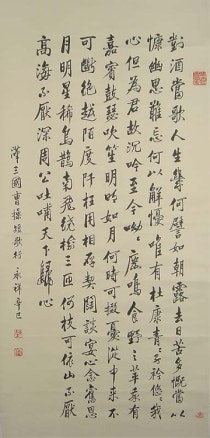 對酒當歌人生幾何譬如朝露去日苦多慨當以
慷幽思難忘何以解憂唯有杜康青々子衿悠々我
心但為君故沉吟至今呦々鹿鳴食野之苹我有
嘉賓鼓瑟吹笙明明如月何時可掇憂從中來不
可斷絕越陌度阡枉用相存契闊談宴心念舊恩
月明星稀烏鵲南飛繞樹三匝何枝可依山不厭
高海不厭深周公吐哺天下歸心
三國曹操短歌行 永祥辛巳